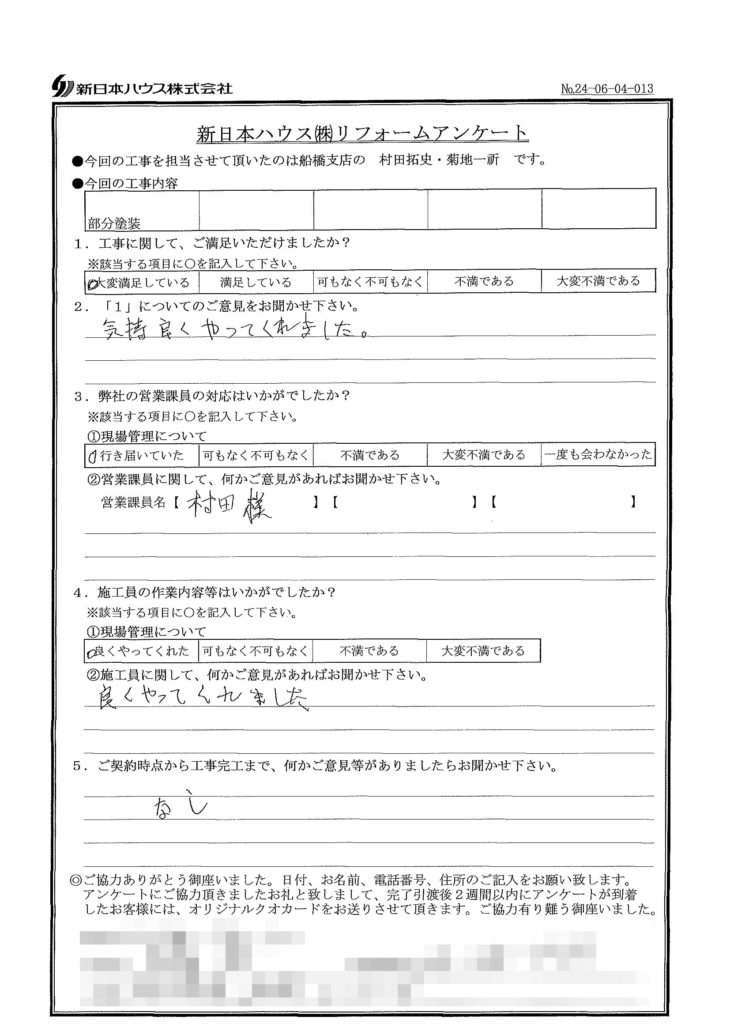 新日本ハウス株式会社
№24-06-04-013
新日本ハウス㈱リフォームアンケート
●今回の工事を担当させて頂いたのは船橋支店の　村田拓史・菊地一祈　です。
●今回の工事内容
部分塗装
1．工事に関して、ご満足いただけましたか？
※該当する項目に○を記入して下さい。
大変満足している　満足している　可もなく不可もなく　不満である　大変不満である
2．「1」についてのご意見をお聞かせ下さい。
気持良くやってくれました。
3．弊社の営業課員の対応はいかがでしたか？
※該当する項目に○を記入して下さい。
①現場管理について
行き届いていた　可もなく不可もなく　不満である　大変不満である　一度も会わなかった
②営業課員に関して、何かご意見があればお聞かせ下さい。
営業課員名【 村田様 】【　】【　】
4．施工員の作業内容等はいかがでしたか？
※該当する項目に○を記入して下さい。
①現場管理について
良くやってくれた　可もなく不可もなく　不満である　大変不満である
②施工員に関して、何かご意見があればお聞かせ下さい。
良くやってくれました
5．ご契約時点から工事完工まで、何かご意見等がありましたらお聞かせ下さい。
なし
◎ご協力ありがとう御座いました。日付、お名前、電話番号、住所のご記入をお願い致します。
アンケートにご協力頂きましたお礼と致しまして、完了引渡後2週間以内にアンケートが到着
したお客様には、オリジナルクオカードをお送りさせて頂きます。ご協力有り難う御座いました。